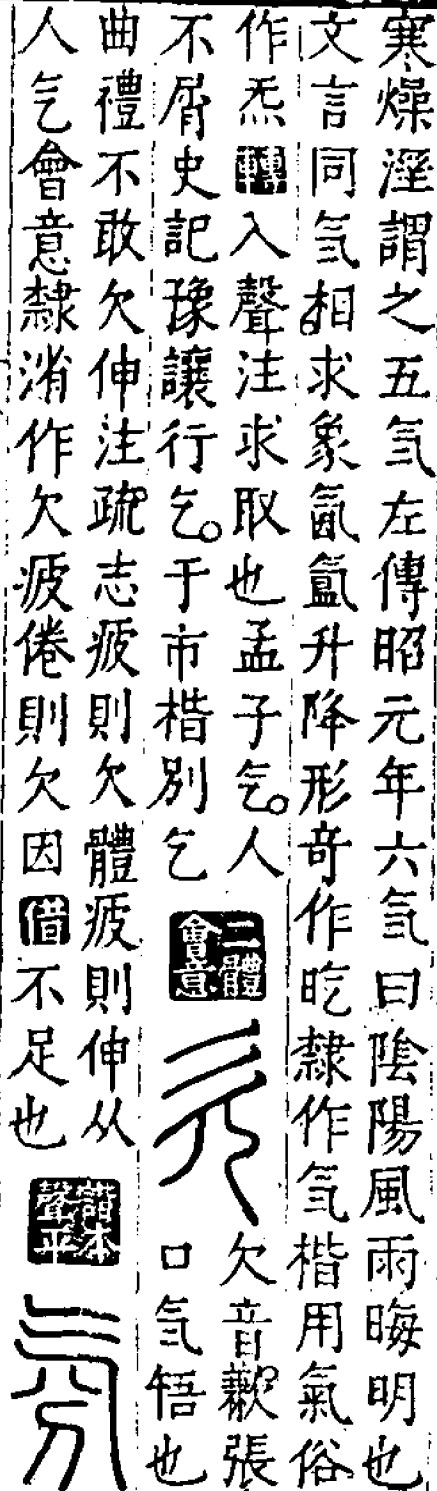 寒燥溼謂之五气左傳昭元年六气曰陰陽風雨晦明也
文言同气相求象氤氳升降形奇作隸作气楷用氣俗
作炁轉入聲注求取也孟子乞人
不屑史記豫讓行乞于市楷別乞
二體
會意
欠音歉張
口气啎也
曲禮不敢欠伸注疏志疲則欠體疲則伸从
人气會意隸消作欠疲倦則欠因借不足也
諧本
聲平